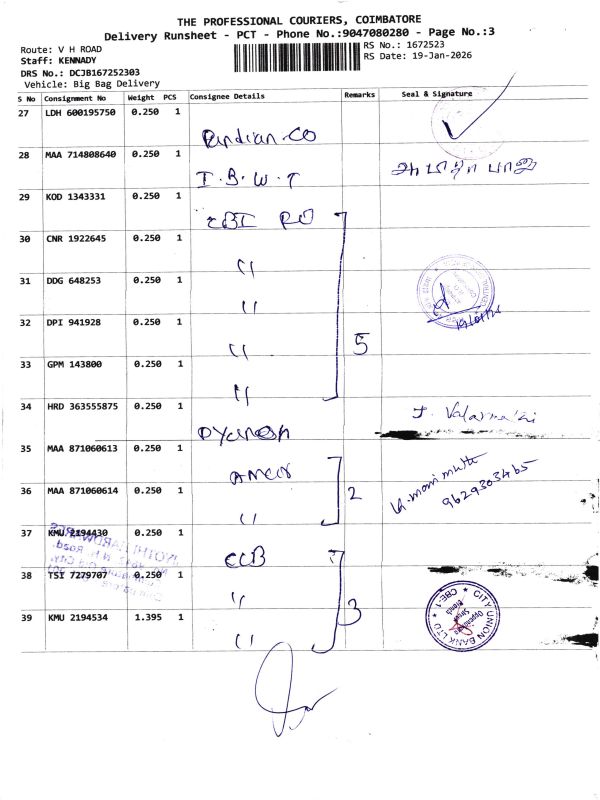 THE PROFESSIONAL COURIERS, COIMBATORE
Delivery Runsheet - PCT - Phone No.:9047080280 - Page No.:3
Route: V H ROAD
RS No.: 1672523
Staff: KENNADY
RS Date: 19-Jan-2026
DRS No.: DCJB167252303
Vehicle: Big Bag Delivery
S No Consignment No Weight PCS Consignee Details Remarks Seal & Signature
27 LDH 600195750 0.250 1 Pandian Co
28 MAA 714808640 0.250 1 I.B.W.T
29 KOD 1343331 0.250 1 CBI RO
30 CNR 1922645 0.250 1 "
31 DDG 648253 0.250 1 "
32 DPI 941928 0.250 1 " 5
33 GPM 143800 0.250 1 "
34 HRD 363555875 0.250 1 J. Valarmathi
35 MAA 871060613 0.250 1
36 MAA 871060614 0.250 1 " 2 9629303465
37 KMU 2194430 0.250 1 CCB
38 TSI 7279707 0.250 1 "
39 KMU 2194534 1.395 1 " 3
CITY UNION BANK LTD
CBE-1